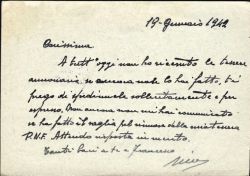 19-Gennaio 1942
Carissima
A tutt'oggi non ho ricevuto la tessera
annonaria, se ancora non lo hai fatto, ti
prego di spedirmela sollecitamente e per
espresso. Non ancora mi hai comunicato
se hai fatto il vaglia pel rinnovo della mia tessera
P.N.F. Attendo risposta in merito.
Tanti baci a te e Francesco